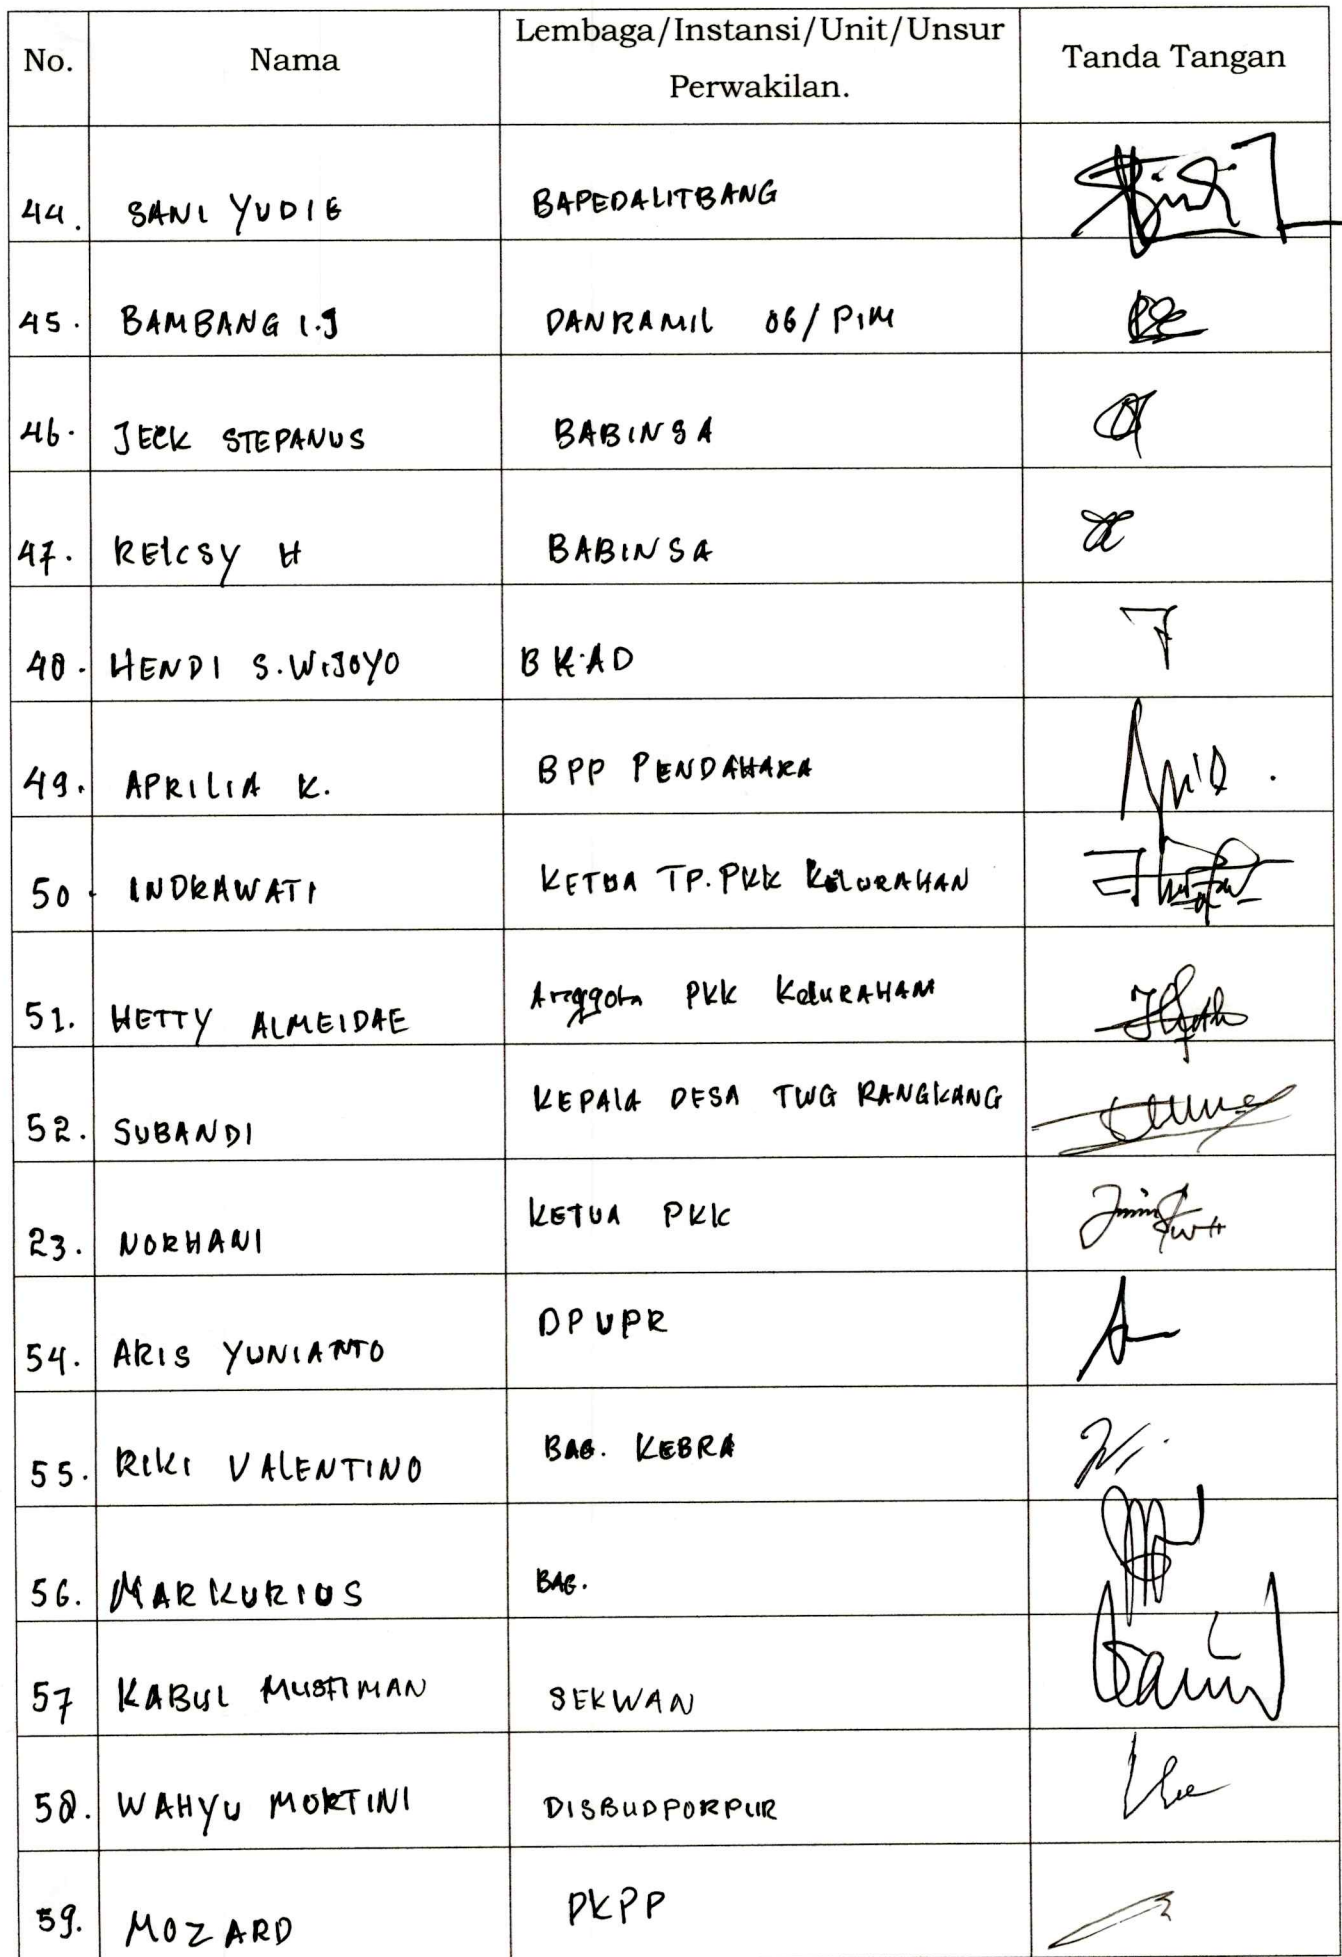 No. Nama Lembaga/Instansi/Unit/Unsur Perwakilan. Tanda Tangan
44. SANI YUDIE BAPEDALITBANG
45. BAMBANG I.J DANRAMIL 06/PIM
46. JECK STEPANUS BABINSA
47. RELCSY H BABINSA
48. HENDI S.WIJOYO BKAD
49. APRILIA K. BPP PENDAHARA
50. INDRAWATI KETUA TP.PKK KELURAHAN
51. HETTY ALMEIDAE Anggota PKK KELURAHAN
52. SUBANDI KEPALA DESA TWG RANGKANG
23. NORHANI KETUA PKK
54. ARIS YUNIANTO DPUPR
55. RIKI VALENTINO BAG. KEBRA
56. MARKURIUS BAG.
57 KABUL MUSTIMAN SEKWAN
58. WAHYU MORTINI DISBUDPORPUR
59. MOZARD PKPP